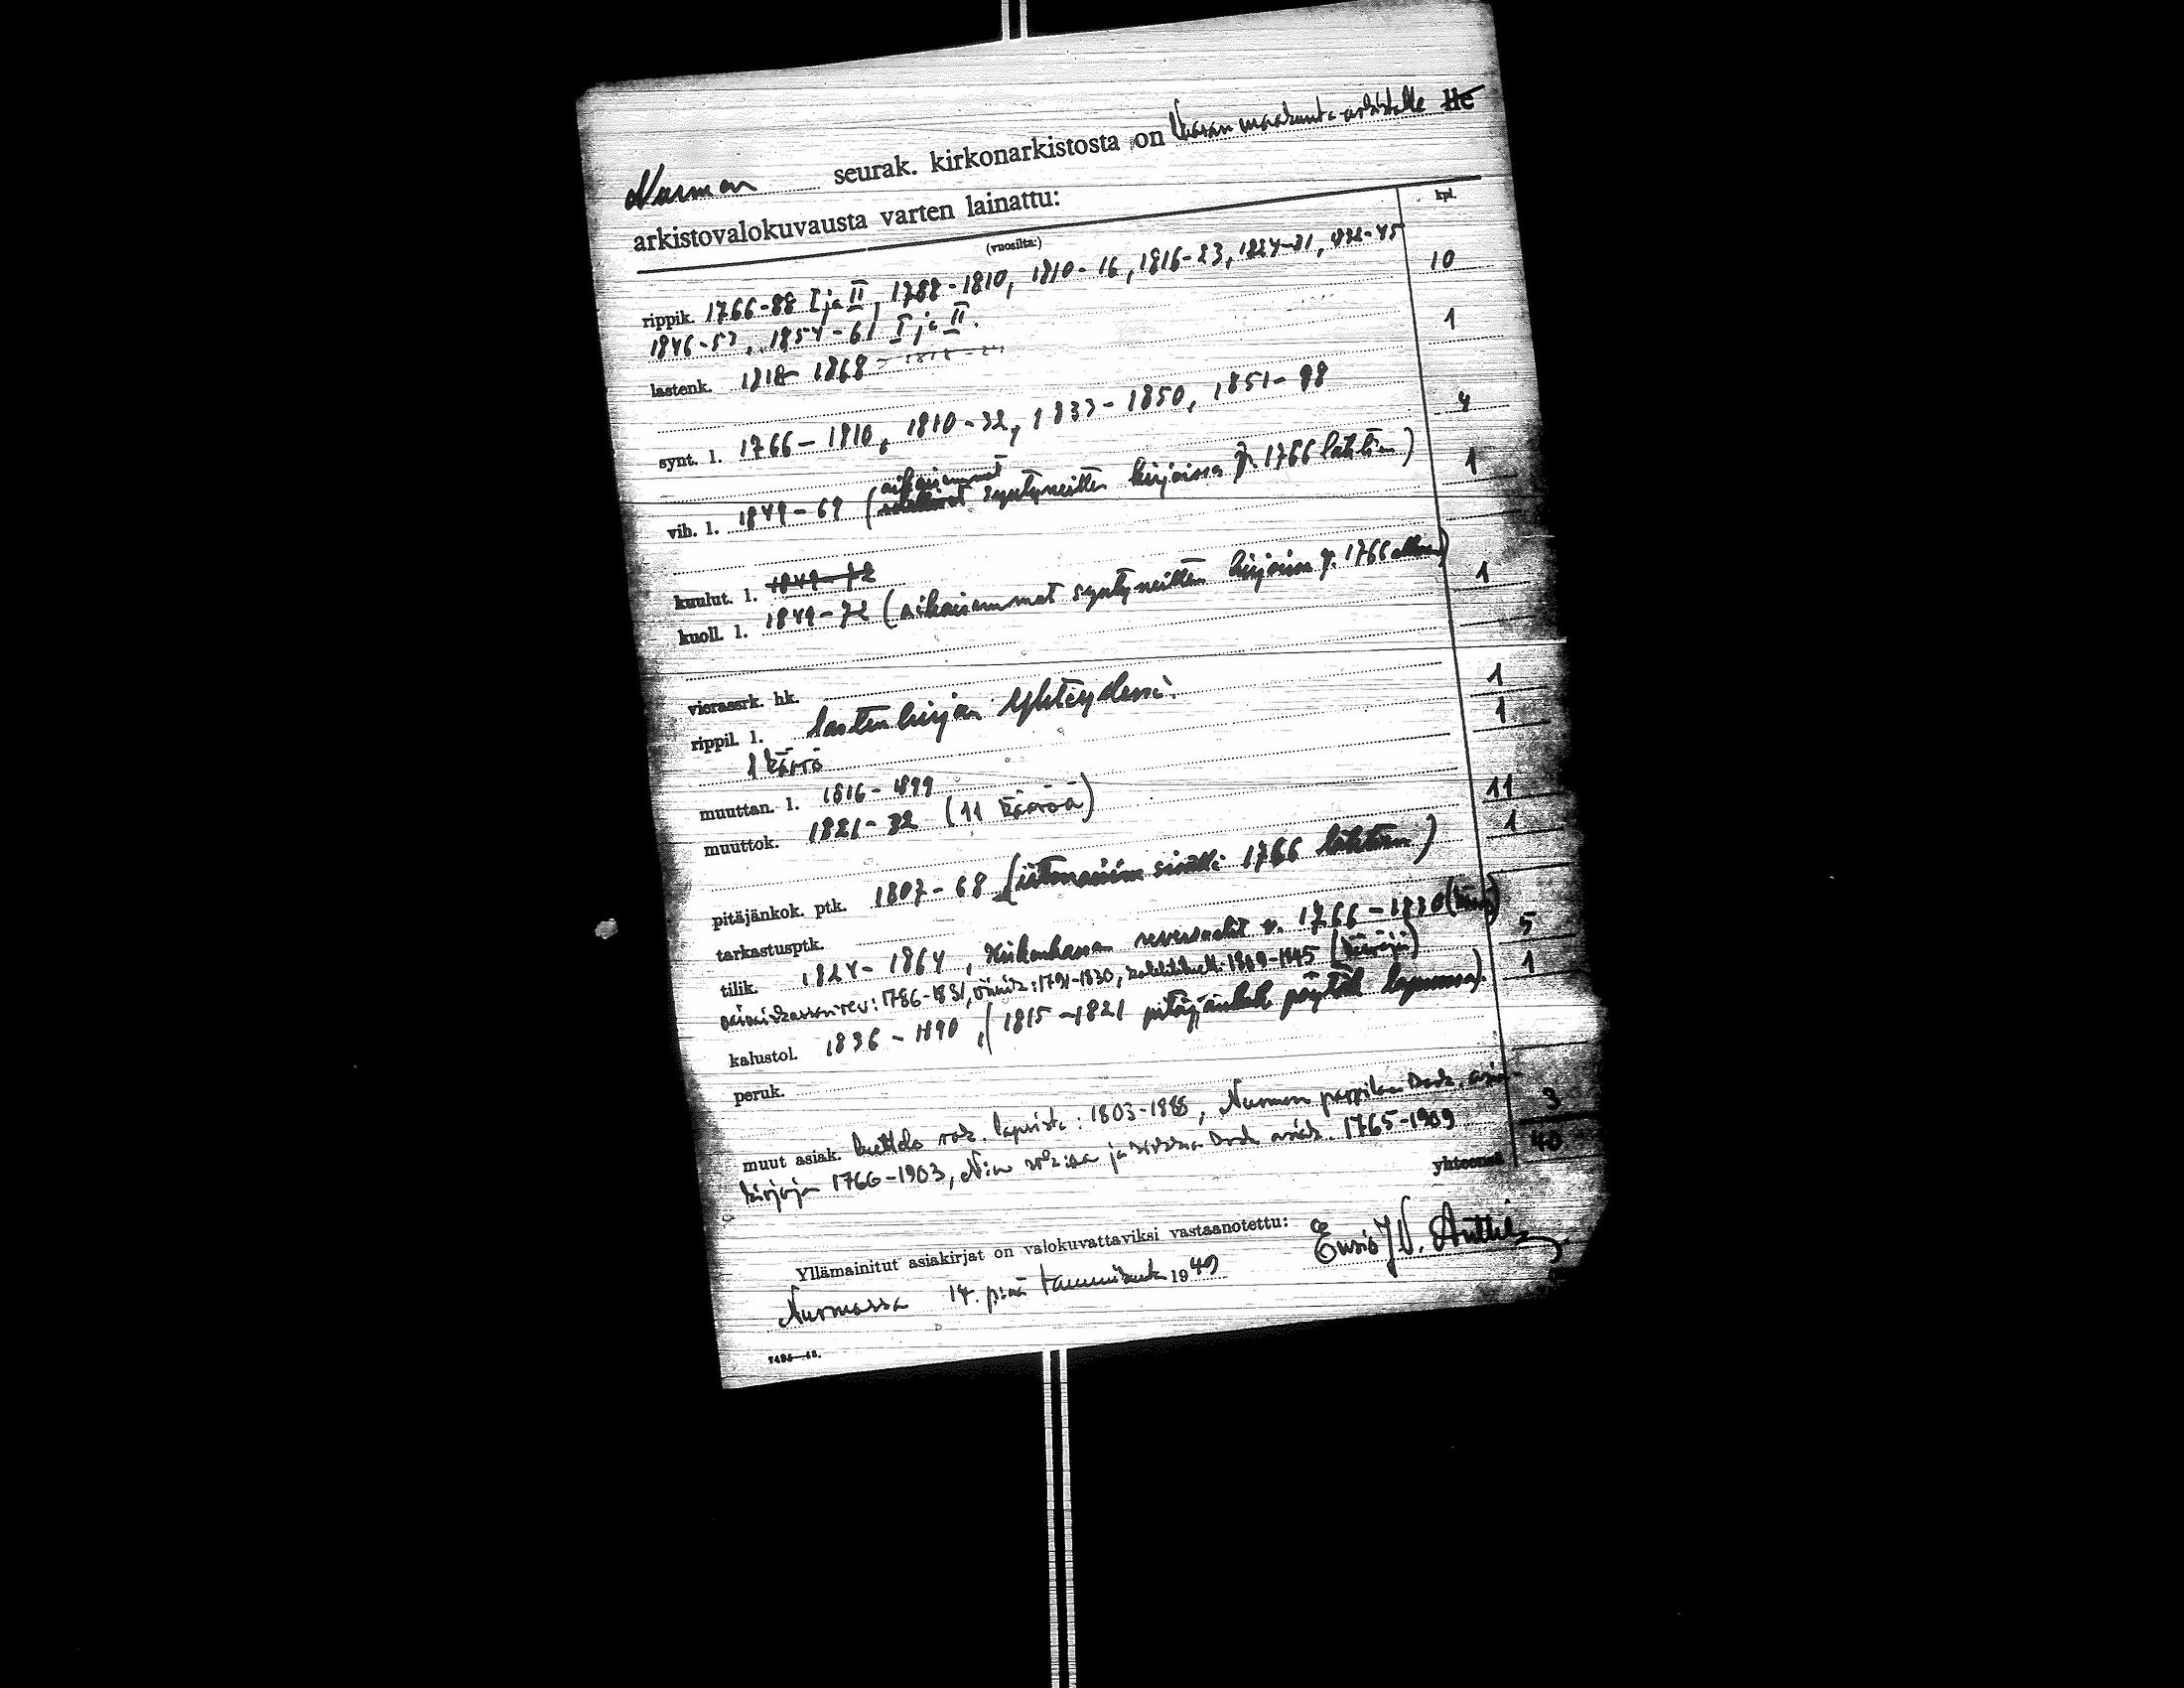 Nurmon seurak. kirkonarkistosta on Vaasan maakunta-arkistolle He
arkistovalokuvausta varten lainattu:
(vuosilta:) kpl.
rippik. 1766-88 I ja II, 1788-1810, 1810-16, 1816-23, 1824-31, 1832-45 10
1846-53, 1854-61 I ja II.
lastenk. 1818-1868 1
synt. l. 1766-1810, 1810-32, 1833-1850, 1851-98 4
aikaisemmat
vih. l. 1849-69 ( syntyneitten kirjoissa v. 1766 lähtien) 1
kuulut. l. 1849-72
kuoll. l. 1849-72 (aikaisemmat syntyneitten kirjoissa v. 1766 alkaen) 1
vierassrk. hk.
rippil. l. lastenkirjan yhteydessä. 1
1 käärö 1
muuttan. l. 1816-1899
muuttok. 1821-32 (11 kääröä) 11
pitäjänkok. ptk. 1807-68 ( 1766 lähtien) 1
tarkastusptk.
tilik. 1824-1864, Kirkonkassan reversaalit v. 1766-1830 5
1786-1831, 1791-1830, 1809-1845
kalustol. 1836-1890, (1815-1821 pitäjänkok. pöytäk. lopussa) 1
peruk.
muut asiak. luettelo rok. lapsista: 1803-1888, Nurmon pappilan rak. asia-
kirjoja 1766-1903, N:n ja kirkon rak. asiak. 1765-1909 3
yhteensä 40
Yllämainitut asiakirjat on valokuvattaviksi vastaanotettu:
Nurmossa 14. p:nä tammikuuta 1949 Ensio J. V. Anttila
7495—48.